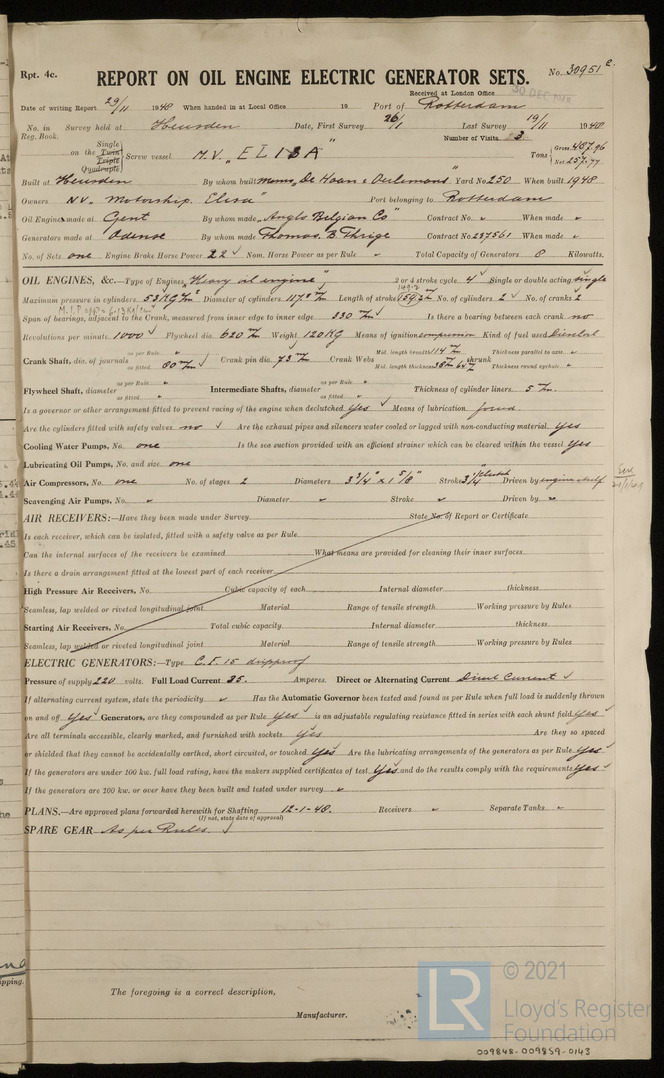 Rpt. 4c. REPORT ON OIL ENGINE ELECTRIC GENERATOR SETS. No. 30951 e.
Received at London Office 30 DEC
Date of writing Report 29/11 1948 When handed in at Local Office 19 Port of Rotterdam
No. in Reg. Book. Survey held at Heusden Date, First Survey 26/1 Last Survey 19/11 1948
Number of Visits 3
on the Single Twin Triple Quadruple Screw vessel M.V. "ELISA" Tons Gross 487.96 Net 257.77
Built at Heusden By whom built Messrs De Haan & Oerlemans Yard No. 250 When built 1948
Owners N.V. Motorship Elisa" Port belonging to Rotterdam
Oil Engines made at Gent By whom made "Anglo Belgian Co" Contract No. " When made "
Generators made at Odense By whom made Thomas B. Thrige Contract No. 237561 When made "
No. of Sets one Engine Brake Horse Power 22 Nom. Horse Power as per Rule " Total Capacity of Generators 8 Kilowatts.
OIL ENGINES, &c.—Type of Engines "Heavy oil engine" 2 or 4 stroke cycle 4 Single or double acting single
Maximum pressure in cylinders 53 KG/cm² Diameter of cylinders 117.5 m/m Length of stroke No. of cylinders 2 No. of cranks 2
Span of bearings, adjacent to the Crank, measured from inner edge to inner edge 330 m/m Is there a bearing between each crank no
Revolutions per minute 1000 Flywheel dia. 620 m/m Weight 120 KG Means of ignition compression Kind of fuel used
Crank Shaft, dia. of journals as per Rule " as fitted 80 m/m Crank pin dia. 73 m/m Crank Webs Mid. length breadth 114 m/m Mid. length thickness shrunk Thickness parallel to axis " Thickness round eyehole "
Flywheel Shaft, diameter as per Rule " as fitted " Intermediate Shafts, diameter as per Rule " as fitted " Thickness of cylinder liners 5 m/m.
Is a governor or other arrangement fitted to prevent racing of the engine when declutched yes Means of lubrication forced.
Are the cylinders fitted with safety valves no Are the exhaust pipes and silencers water cooled or lagged with non-conducting material yes
Cooling Water Pumps, No. one Is the sea suction provided with an efficient strainer which can be cleared within the vessel yes
Lubricating Oil Pumps, No. and size one
Air Compressors, No. one No. of stages 2 Diameters 3 3/4" x 1 5/8" Stroke 3 1/4" Driven by
Scavenging Air Pumps, No. " Diameter " Stroke " Driven by "
AIR RECEIVERS:—Have they been made under Survey State No. of Report or Certificate
Is each receiver, which can be isolated, fitted with a safety valve as per Rule
Can the internal surfaces of the receivers be examined What means are provided for cleaning their inner surfaces
Is there a drain arrangement fitted at the lowest part of each receiver
High Pressure Air Receivers, No. Cubic capacity of each Internal diameter thickness
Seamless, lap welded or riveted longitudinal joint Material Range of tensile strength Working pressure by Rules
Starting Air Receivers, No. Total cubic capacity Internal diameter thickness
Seamless, lap welded or riveted longitudinal joint Material Range of tensile strength Working pressure by Rules
ELECTRIC GENERATORS:—Type C.F. 15 dripproof
Pressure of supply 220 volts. Full Load Current 35. Amperes. Direct or Alternating Current Direct Current
If alternating current system, state the periodicity " Has the Automatic Governor been tested and found as per Rule when full load is suddenly thrown
on and off Yes Generators, are they compounded as per Rule yes is an adjustable regulating resistance fitted in series with each shunt field yes
Are all terminals accessible, clearly marked, and furnished with sockets yes Are they so spaced
or shielded that they cannot be accidentally earthed, short circuited, or touched Yes Are the lubricating arrangements of the generators as per Rule yes
If the generators are under 100 kw. full load rating, have the makers supplied certificates of test Yes and do the results comply with the requirements yes
If the generators are 100 kw. or over have they been built and tested under survey "
PLANS.—Are approved plans forwarded herewith for Shafting 12-1-48. Receivers " Separate Tanks "
(If not, state date of approval)
SPARE GEAR As per Rules.
The foregoing is a correct description,
Manufacturer.
LR © 2021
Lloyd's Register
Foundation
009848-009859-0143